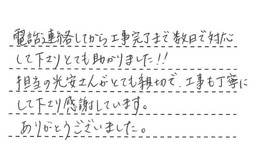 電話連絡してから工事完了まで数日で対応
して下さりとても助かりました!!
担当の光安さんがとても親切で、工事も丁寧に
して下さり感謝しています。
ありがとうございました。